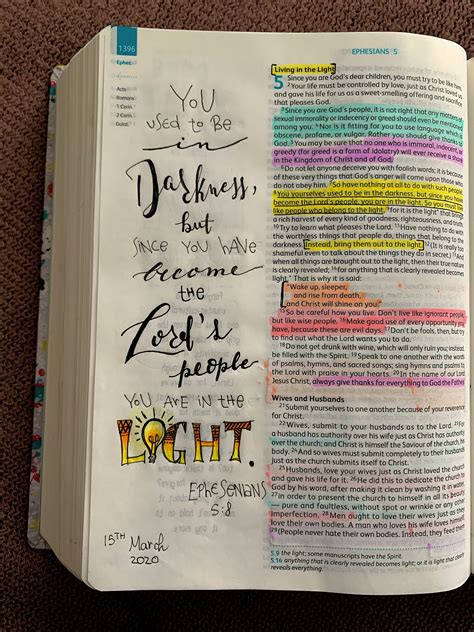 1396
EPHESIANS 5
Ephes
Acts
Romans
1 Corin.
2 Corin.
Galat.
YOU
USED TO BE
in
Darkness,
but
SINCE YOU HAVE
become
the
Lord's
people
YOU ARE IN THE
LIGHT.
EPHESENIANS
5:8
15TH March
2020
Living in the Light
5 Since you are God's dear children, you must try to be like him.
2 Your life must be controlled by love, just as Christ loved us
and gave his life for us as a sweet-smelling offering and sacrifice
that pleases God.
3 Since you are God's people, it is not right that any matters of
sexual immorality or indecency or greed should even be mentioned
among you. 4 Nor is it fitting for you to use language which is
obscene, profane, or vulgar. Rather you should give thanks to
God. 5 You may be sure that no one who is immoral, indecent, or
greedy (for greed is a form of idolatry) will ever receive a share
in the Kingdom of Christ and of God.
6 Do not let anyone deceive you with foolish words; it is because
of these very things that God's anger will come upon those who
do not obey him. 7 So have nothing at all to do with such people.
8 You yourselves used to be in the darkness, but since you have
become the Lord's people, you are in the light. So you must live
like people who belong to the light, 9 for it is the light that brings
a rich harvest of every kind of goodness, righteousness, and truth.
10 Try to learn what pleases the Lord. 11 Have nothing to do with
the worthless things that people do, things that belong to the
darkness. Instead, bring them out to the light. 12 (It is really too
shameful even to talk about the things they do in secret.) 13 And
when all things are brought to the light, then their true nature
is clearly revealed; 14 for anything that is clearly revealed becomes
light. That is why it is said:
"Wake up, sleeper,
and rise from death,
and Christ will shine on you."
15 So be careful how you live. Don't live like ignorant people,
but like wise people. 16 Make good use of every opportunity you
have, because these are evil days. 17 Don't be fools, then, but try
to find out what the Lord wants you to do.
18 Do not get drunk with wine, which will only ruin you; instead,
be filled with the Spirit. 19 Speak to one another with the words
of psalms, hymns, and sacred songs; sing hymns and psalms to
the Lord with praise in your hearts. 20 In the name of our Lord
Jesus Christ, always give thanks for everything to God the Father.
Wives and Husbands
21 Submit yourselves to one another because of your reverence
for Christ.
22 Wives, submit to your husbands as to the Lord. 23 For
a husband has authority over his wife just as Christ has authority
over the church; and Christ is himself the Saviour of the church, his
body. 24 And so wives must submit completely to their husbands
just as the church submits itself to Christ.
25 Husbands, love your wives just as Christ loved the church
and gave his life for it. 26 He did this to dedicate the church to
God by his word, after making it clean by washing it in water,
27 in order to present the church to himself in all its beauty
— pure and faultless, without spot or wrinkle or any other
imperfection. 28 Men ought to love their wives just as they
love their own bodies. A man who loves his wife loves himself.
29 (People never hate their own bodies. Instead, they feed them
5.9 the light; some manuscripts have the Spirit.
5.14 anything that is clearly revealed becomes light; or it is light that clearly
reveals everything.